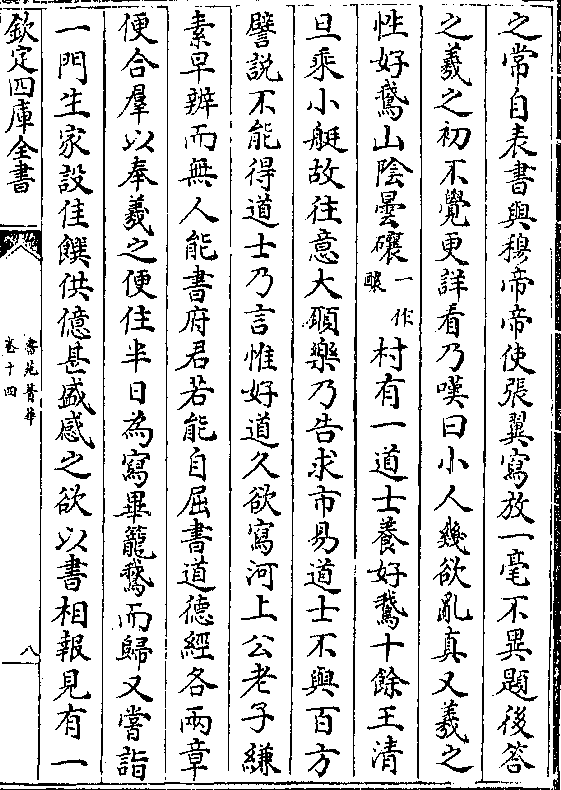 之常自表書與穆帝帝使張翼寫放一毫不異題後答
之羲之初不覺更詳看乃嘆曰小人幾欲亂真又羲之
性好鵞山陰曇礹一作釀村有一道士養好鵞十餘王清
旦乘小艇故往意大願樂乃告求市易道士不與百方
譬說不能得道士乃言惟好道久欲寫河上公老子縑
素早辨而無人能書府君若能自屈書道德經各兩章
便合羣以奉羲之便住半日為寫畢籠鵞而歸又嘗詣
一門生家設佳饌供億甚盛感之欲以書相報見有一
欽定四庫全書
書苑菁華
卷十四
八